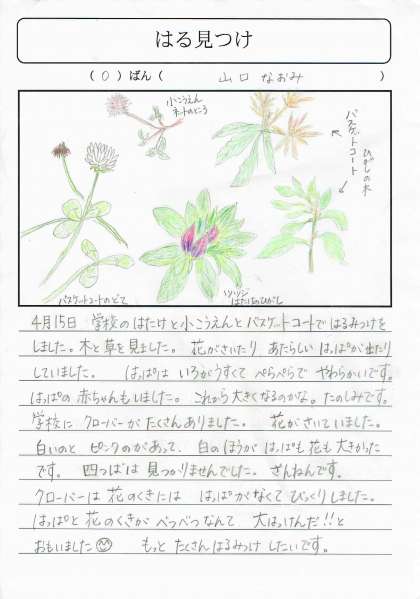 はる見つけ
（ 0 ）ばん（ 山口 なおみ ）
小こうえん
ネットのところ
バスケットコート
ひがしの木
バスケットコートのどて
ツツジ
はたけのひがし
4月15日 学校のはたけと小こうえんとバスケットコートではるみつけを
しました。木と草を見ました。 花がさいたり あたらしい はっぱが出たり
していました。 はっぱは いろがうすくて ぺらぺらで やわらかいです。
はっぱの赤ちゃんもいました。これから大きくなるのかな。たのしみです。
学校に クローバーが たくさんありました。 花がさいていました。
白いのと ピンクのがあって、 白のほうが はっぱも花も大きかった
です。 四つばは 見つかりませんでした。 ざんねんです。
クローバーは 花のくきには はっぱがなくて びっくりしました。
はっぱと 花のくきが べつべつなんて 大はっけんだ!!と
おもいました もっと たくさんはるみつけ したいです。